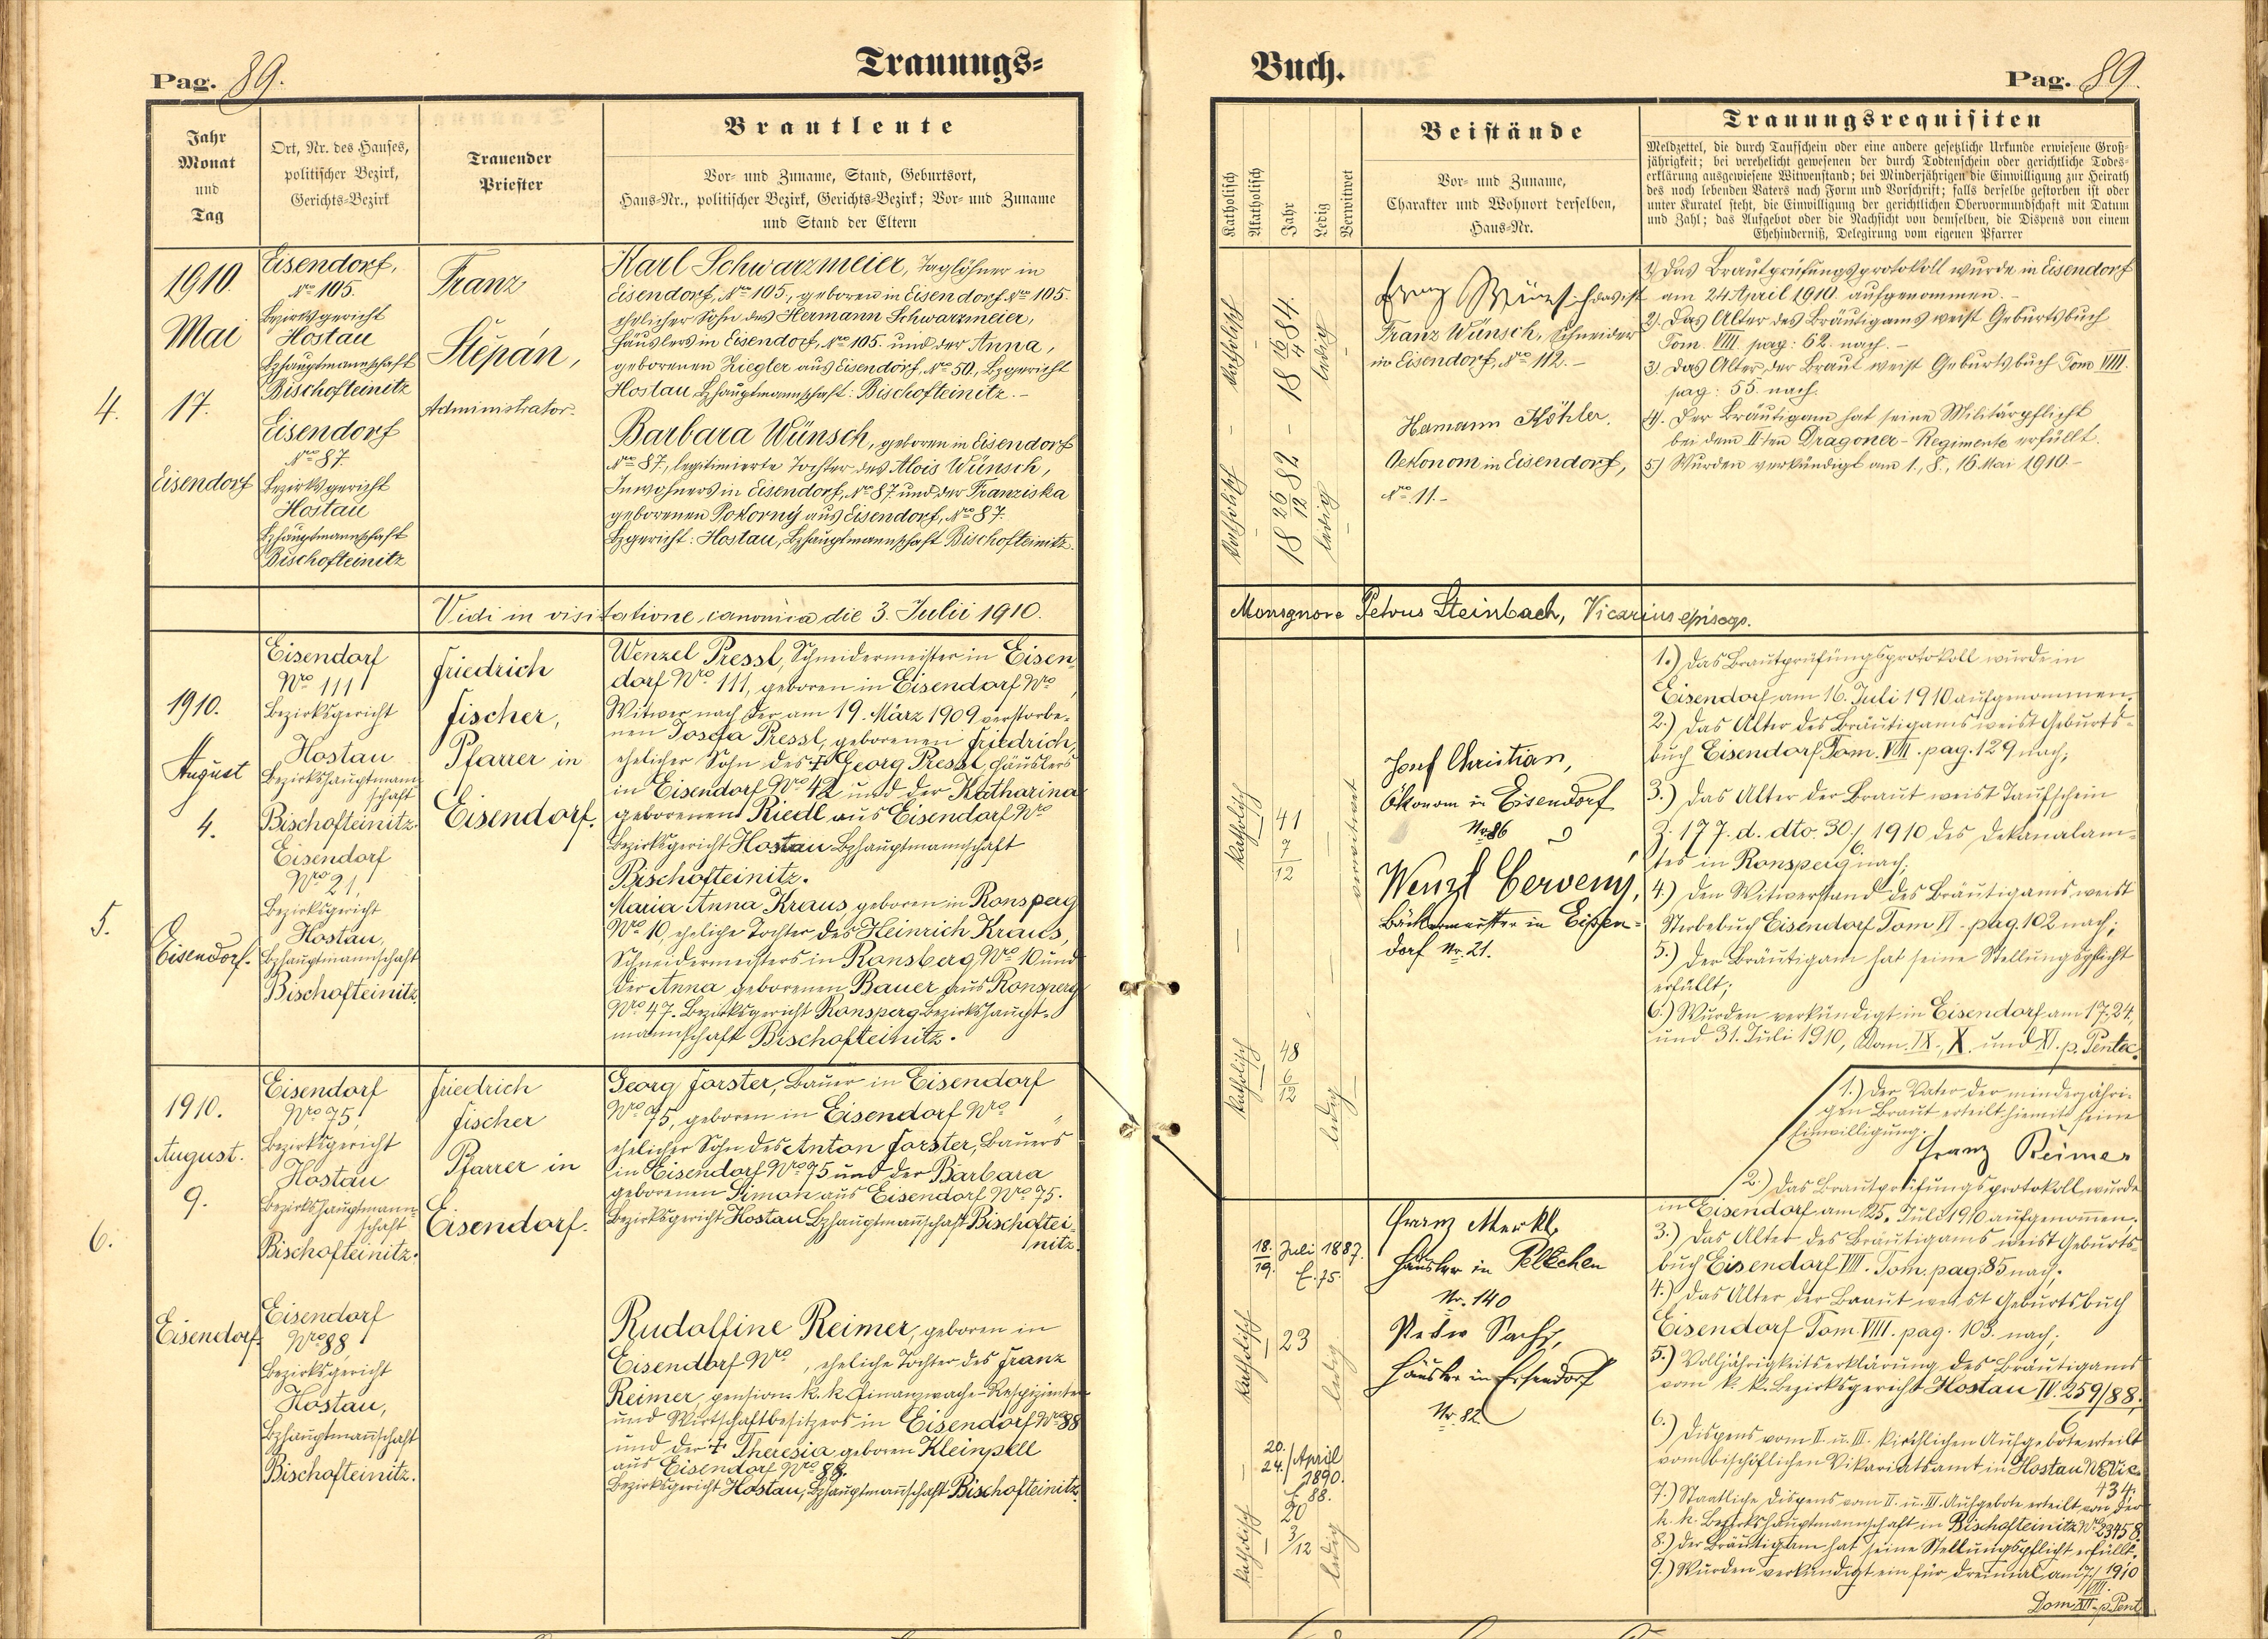 Pag. 89.
Trauungs=
Jahr
Monat
und
Tag
Ort, Nr. des Hauses,
politischer Bezirk,
Gerichts=Bezirk
Trauender
Priester
Brautleute
Vor= und Zuname, Stand, Geburtsort,
Haus=Nr., politischer Bezirk, Gerichts=Bezirk; Vor= und Zuname
und Stand der Eltern
4.
1910.
Mai
17.
Eisendorf
Eisendorf,
Nro 105.
Bezirksgericht
Hostau
Bzhauptmannschaft
Bischofteinitz
Eisendorf
Nro 87.
Bezirksgericht
Hostau
Bzhauptmannschaft
Bischofteinitz
Franz
Štěpán,
Administrator.
Karl Schwarzmeier, Taglöhner in
Eisendorf, Nro 105., geboren in Eisendorf Nro 105.
ehelicher Sohn des Hermann Schwarzmeier,
Häuslers in Eisendorf, Nro 105. und der Anna,
geborenen Ziegler aus Eisendorf, Nro 50, Bzgericht
Hostau Bzhauptmannschaft: Bischofteinitz.-
Barbara Wünsch, geboren in Eisendorf
Nro 87., legitimierte Tochter des Alois Wünsch,
Inwohners in Eisendorf, Nro 87 und der Franziska
geborenen Pokorný aus Eisendorf, Nro 87.
Bzgericht: Hostau, Bzhauptmannschaft Bischofteinitz.
Vidi in visitatione canonica die 3. Julii 1910.
5.
1910.
August
4.
Eisendorf.
Eisendorf
Nro 111
Bezirksgericht
Hostau
Bezirkshauptmann
schaft
Bischofteinitz.
Eisendorf
Nro 21,
Bezirksgericht
Hostau,
Bzhauptmannschaft
Bischofteinitz
Friedrich
Fischer,
Pfarrer in
Eisendorf.
Wenzel Pressl, Schneidermeister in Eisen
dorf Nro 111, geboren in Eisendorf Nro ,
Witwer nach der am 19. März 1909 verstorbe-
nen Josefa Pressl, geborenen Friedrich,
ehelicher Sohn des † Georg Pressl, Häuslers
in Eisendorf Nro 42 und der Katharina
geborenen Riedl aus Eisendorf Nro
Bezirksgericht Hostau Bzhauptmannschaft
Bischofteinitz.
Maria Anna Kraus, geboren in Ronsperg
Nro 10, eheliche Tochter des Heinrich Kraus,
Schneidermeisters in Ronsberg Nro 10 und
der Anna geborenen Bauer aus Ronsperg
Nro 47. Bezirksgericht Ronsperg Bezirkshaupt-
mannschaft Bischofteinitz.
6.
1910.
August.
9.
Eisendorf.
Eisendorf
Nro 75,
Bezirksgericht
Hostau
Bezirkshauptmann
schaft
Bischofteinitz.
Eisendorf
Nro 88
Bezirksgericht
Hostau,
Bzhauptmannschaft
Bischofteinitz.
Friedrich
Fischer
Pfarrer in
Eisendorf.
Georg Forster, Bauer in Eisendorf
Nro 75, geboren in Eisendorf Nro "
ehelicher Sohn des Anton Forster, Bauers
in Eisendorf Nro 75 und der Barbara
geborenen Simon aus Eisendorf Nro 75.
Bezirksgericht Hostau Bzhauptmannschaft Bischoftei-
nitz.
Rudolfine Reimer, geboren in
Eisendorf Nro , eheliche Tochter des Franz
Reimer, pension. k. k. Finanzwache-Respizienten
und Wirtschaftbesitzers in Eisendorf Nro 88
und der † Theresia geboren Kleinpell
aus Eisendorf Nro 88.
Bezirksgericht Hostau, Bzhauptmannschaft Bischofteinitz.
Buch.
Pag. 89.
Katholisch
Akatholisch
Jahr
Ledig
Verwitwet
Beistände
Vor= und Zuname,
Charakter und Wohnort derselben,
Haus=Nr.
Trauungsrequisiten
Meldzettel, die durch Taufschein oder eine andere gesetzliche Urkunde erwiesene Groß=
jährigkeit; bei verehelicht gewesenen der durch Todtenschein oder gerichtliche Todes=
erklärung ausgewiesene Witwenstand; bei Minderjährigen die Einwilligung zur Heirath
des noch lebenden Vaters nach Form und Vorschrift; falls derselbe gestorben ist oder
unter Kuratel steht, die Einwilligung der gerichtlichen Obervormundschaft mit Datum
und Zahl; das Aufgebot oder die Nachsicht von demselben, die Dispens von einem
Ehehinderniß, Delegirung vom eigenen Pfarrer
katholisch
18 16/4 84.
ledig
katholisch
18 26/12 82
ledig
Franz Wünsch
Franz Wünsch, Schneider
in Eisendorf, Nro 112.-
Hamann Köhler.
Oekonom in Eisendorf,
Nro 11.-
1) Das Brautprüfungsprotokoll wurde in Eisendorf
am 24 April 1910. aufgenommen.-
2). Das Alter des Bräutigams weist Geburtsbuch
Tom. VIII. pag: 62. nach.-
3) Das Alter der Braut weist Geburtsbuch Tom VIII.
pag: 55. nach.
4). Der Bräutigam hat seine Militärpflicht
bei dem II.ten Dragoner-Regimente erfüllt.
5) Wurden verkündigt am 1., 8., 16 Mai 1910.-
Monsignore Petrus Steinbach, Vicarius episcop.
katholisch
41
7
12
verwitwet
katholisch
48
6
12
ledig
Josef Christian,
Ökonom in Eisendorf
Nr. 86
Wenzl Červený,
Bäckermeister in Eisen=
dorf Nr. 21.
1.) Das Brautprüfungsprotokoll wurde in
Eisendorf am 16. Juli 1910 aufgenommen.
2.) Das Alter des Bräutigams weist Geburts-
buch Eisendorf Tom. VII. pag. 129 nach;
3.) Das Alter der Braut weist Taufschein
Z. 177. d. dto. 30./6 1910 des Dekanalam-
tes in Ronsperg nach;
4.) Den Witwerstand des Bräutigams weist
Sterbebuch Eisendorf Tom VI. pag. 102 nach;
5.) Der Bräutigam hat seine Stellungspflicht
erfüllt;
6.) Wurden verkündigt in Eisendorf am 17., 24.,
und 31. Juli 1910, Dom. IX., X. und XI. p. Pentec.
18. Juli 1887.
19. E. 75.
katholisch
23
ledig
20.
24./April
1890.
E. 88.
20
3/12
katholisch
ledig
Franz Merkl,
Häusler in
Nr. 140
Sachs,
Häusler in Eisendorf
Nr. 82
1.) Der Vater der minderjähri-
gen Braut erteilt hiemit seine
Einwilligung.
Franz Reimer
2.) Das Brautprüfungsprotokoll wurde
in Eisendorf am 25. Juli 1910 aufgenommen.
3.) Das Alter des Bräutigams weist Geburts-
buch Eisendorf VIII. Tom. pag. 85 nach;
4.) Das Alter der Braut weist Geburtsbuch
Eisendorf Tom. VIII. pag. 103. nach;
5.) Volljährigkeitserklärung des Bräutigams
vom k. k. Bezirksgericht Hostau IV. 259/88;
6.) Dispens vom II. u. III. kirchlichen Aufgebote erteilt
vom bischöflichen Vikariatsamt in Hostau
434.
7.) Staatliche Dispens vom II. u. III. Aufgebote erteilt von der
k. k. Bezirkshauptmannschaft in Bischofteinitz Nro 23458.
8.) Der Bräutigam hat seine Stellungspflicht erfüllt.
9.) Wurden verkündigt ein für dreimal am 7./VIII. 1910
Dom. XII. p. Pent.